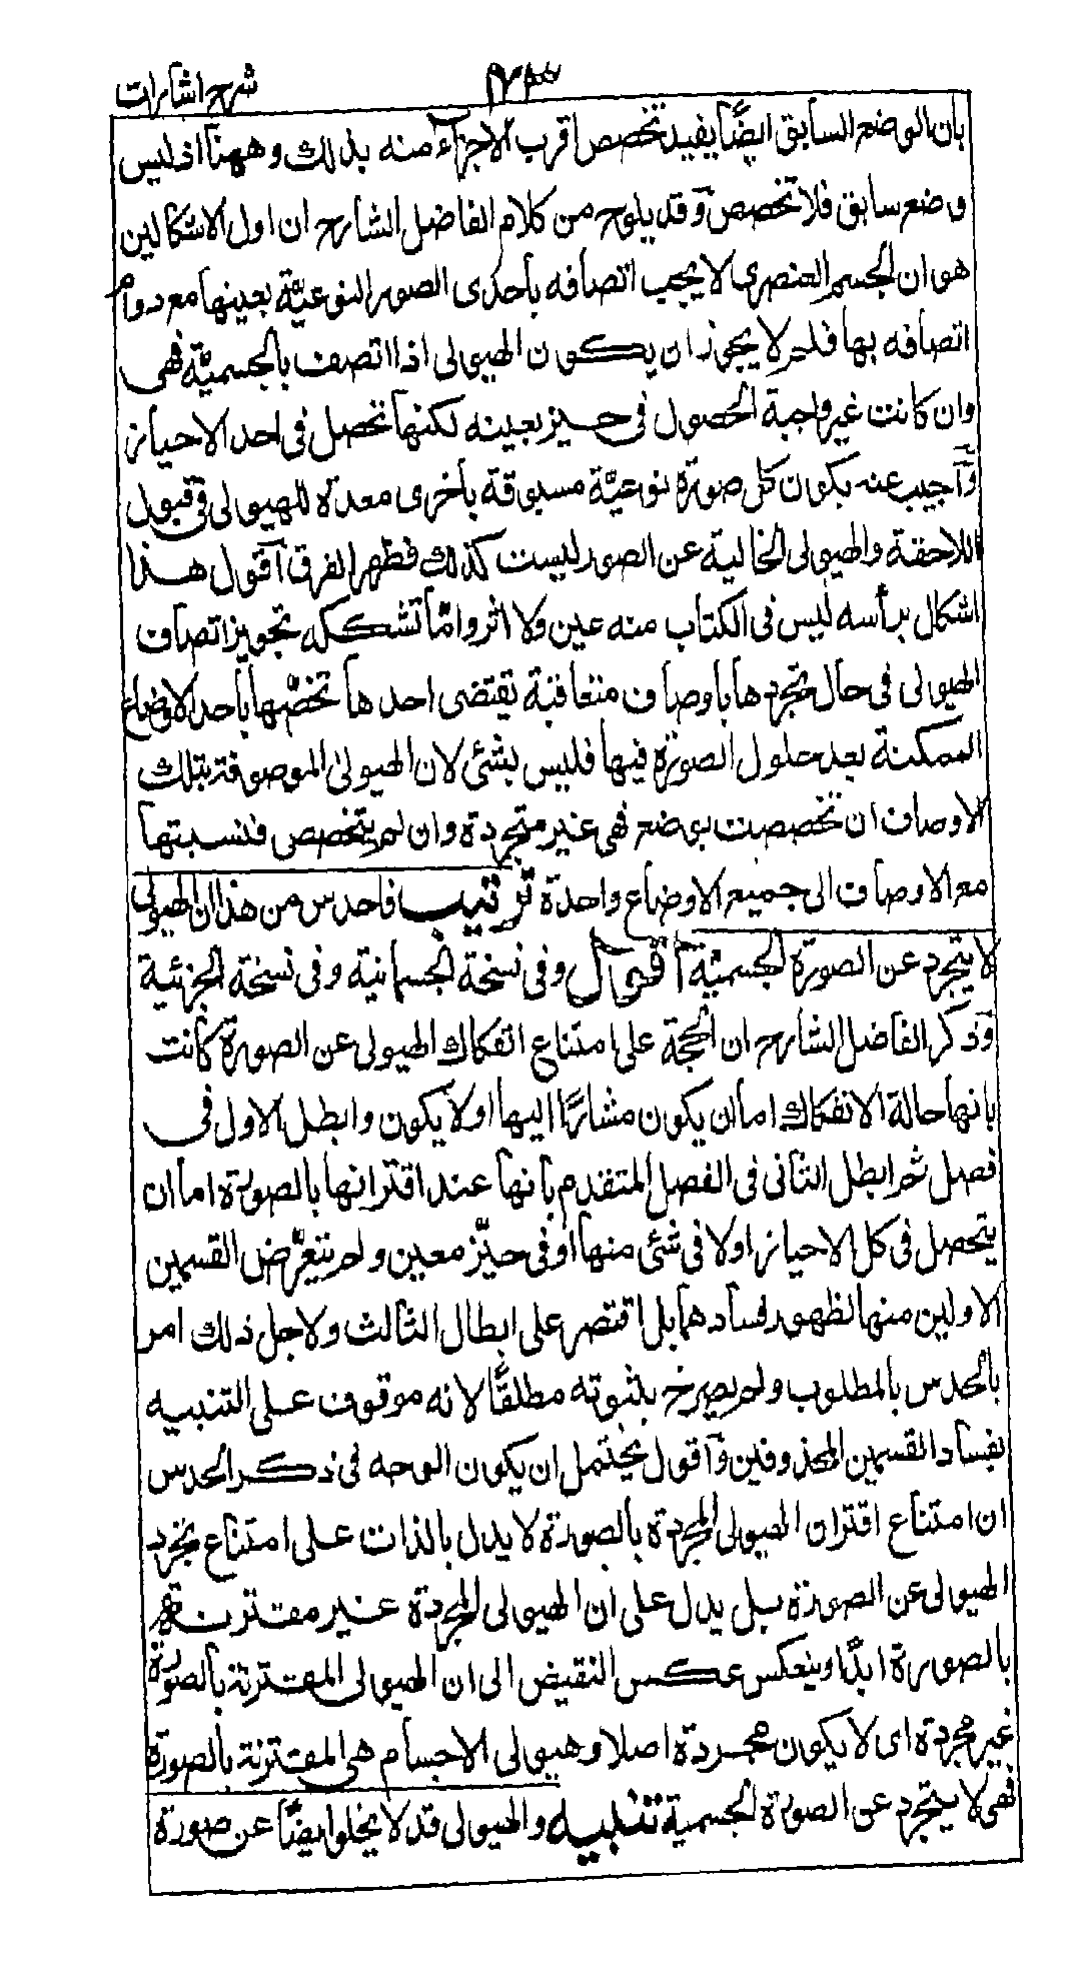 شرح اشارات
بان الوضع السابق ايضًا يفيد تخصص اقرب الاجزاء منه بذلك وههنا اذ ليس
وضع سابق فلا تخصص وقد يلوح من كلام الفاضل الشارح ان اول الاشكالين
هو ان الجسم العنصري لا يجب اتصافه باحدى الصور النوعيّة بعينها مع دوام
اتصافه بها فلم لا يجوز ان يكون الهيولى اذا اتصفت بالجسميّة فهى
وان كانت غير واجبة الحصول فى حيز بعينه لكنها تحصل فى احد الاحياز
وآجيب عنه بكون كل صورة نوعيّة مسبوقة باخرى معدة للهيولى فى قبول
اللاحقة والهيولى الخالية عن الصور ليست كذلك فظهر الفرق آقول هذا
اشكال برأسه ليس فى الكتاب منه عين ولا اثر وامّا تشككه تجويز اتصاف
الهيولى فى حال تجردها باوصاف متعاقبة يقتضى احدها تخصّها باحد الاوضاع
الممكنة بعد حلول الصورة فيها فليس بشئ لان الهيولى الموصوفة بتلك
الاوصاف ان تخصصت بوضع فهى غير متجردة وان لم يتخصص فنسبتها
مع الاوصاف الى جميع الاوضاع واحدة ترتيب فاحدس من هذا ان الهيولى
لا يتجرد عن الصورة الجسميّة آقول وفى نسخة الجسمانية وفى نسخة الجزئية
وذكر الفاضل الشارح ان الحجة على امتناع انفكاك الهيولى عن الصورة كانت
بانها حالة الانفكاك اما ان يكون مشارًا اليها اولا يكون وابطل الاول فى
فصل ثم ابطل الثانى فى الفصل المتقدم بانها عند اقترانها بالصورة اما ان
يتحصل فى كل الاحياز اولا فى شئ منها اوفى حيّز معين ولم يتعرّض القسمين
الاولين منها لظهور فسادهما بل اقتصر على ابطال الثالث ولاجل ذلك امر
بالحدس بالمطلوب ولم يصرح بثبوته مطلقًا لانه موقوف على التنبيه
بفساد القسمين المحذوفين وآقول يحتمل ان يكون الوجه فى ذكر الحدس
ان امتناع اقتران الهيولى المجردة بالصورة لا يدل بالذات على امتناع تجرد
الهيولى عن الصورة بل يدل على ان الهيولى المجردة غير مقترنة
بالصورة ابدًا وينعكس عكس النقيض الى ان الهيولى المقترنة بالصورة
غير مجردة اى لا يكون مجردة اصلا وهيولى الاجسام هى المقترنة بالصورة
فهى لا يتجرد عن الصورة الجسمية تنبيه والهيولى قد لا يخلو ايضًا عن صورة